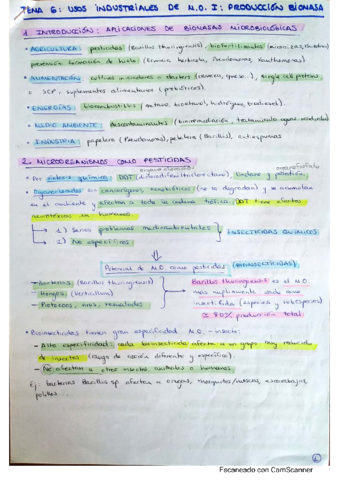 TEMA 6: USOS INDUSTRIALES DE M.O. I: PRODUCCIÓN BIOMASA
1. INTRODUCCIÓN: APLICACIONES DE BIOMASAS MICROBIOLÓGICAS
· AGRICULTURA: pesticidas (Bacillus thuringiensis), biofertilizantes
prevención formación de hielo (Erwinia herbicola, Pseudomonas, Xanthomonas)
· ALIMENTACIÓN: cultivos iniciadores o starters (cerveza, queso...), single cell proteins
o SCP, suplementos alimentarios (probióticos).
· ENERGÍAS: biocombustibles (metano, bioetanol, hidrógeno, biodiesel).
· MEDIO AMBIENTE: descontaminantes (biorremediación, tratamiento aguas residuales)
· INDUSTRIA: papelera (Pseudomonas), peletera (Bacillus), antiespumas
2. MICROORGANISMOS COMO PESTICIDAS
organoclorados organofosfato
· Por síntesis química: DDT (diclorodifeniltricloroetano), lindano y malatión.
· Organoclorados son cancerígenos, xenobióticos (no se degradan) y se acumulan
en el ambiente y afectan a toda la cadena trófica. DDT tiene efectos
neurotóxicos en humanos.
1) Serios problemas medioambientales
2) No específicos
INSECTICIDAS QUÍMICOS
Potencial de M.O. como pesticidas (BIOINSECTICIDAS)
- Bacterias (Bacillus thuringiensis)
- Hongos (Verticillium)
- Protozoos, virus, nematodos
Bacillus thuringiensis es el M.O.
más ampliamente usado como
insecticida (especies y subespecies)
≃ 90% producción total.
· Bioinsecticidas tienen gran especificidad M.O. - insecto:
- Alta especificidad: cada bioinsecticida afecta a un grupo muy reducido
de insectos (rango de acción diferente y específico).
- No afectan a otros insectos, animales o humanos.
Ej: bacterias Bacillus sp. afectan a orugas, mosquitos/moscas, escarabajos,
polillas...
1
Escaneado con CamScanner